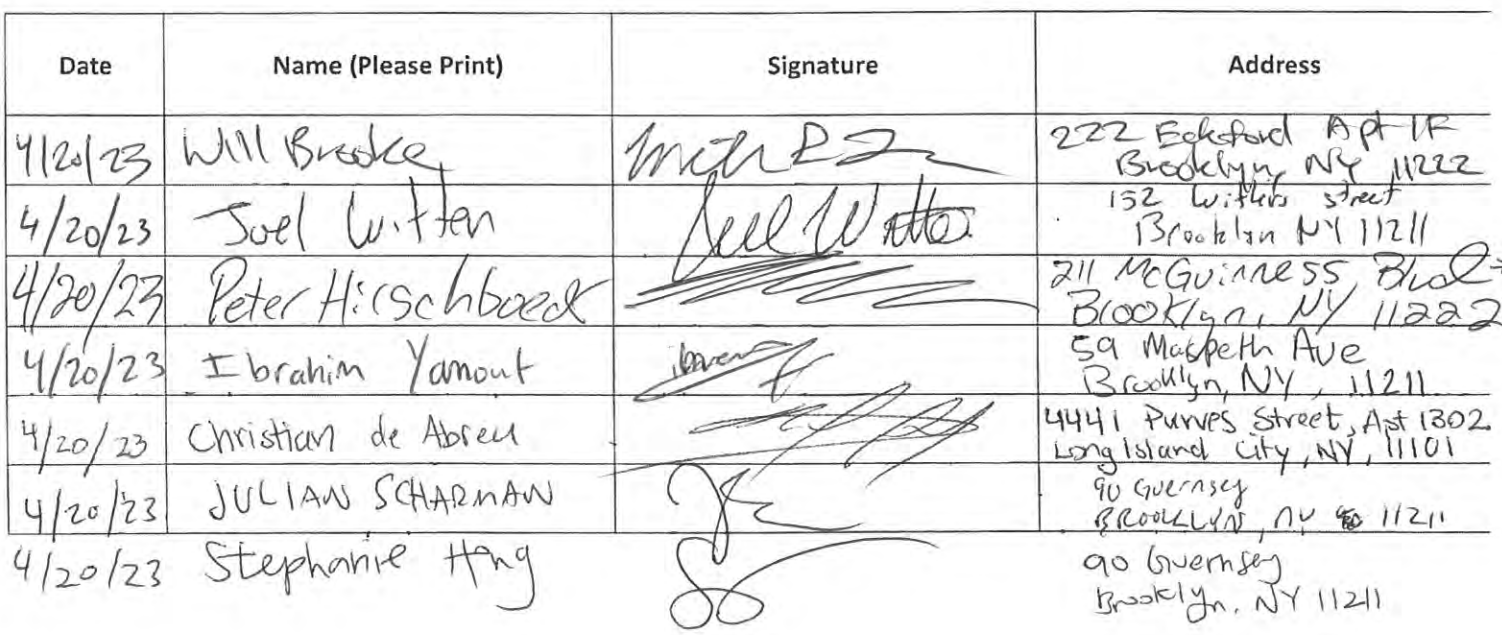 Date Name (Please Print) Signature Address
4/20/23 Will Brooke 222 Eckford Apt 1F
Brooklyn, NY 11222
4/20/23 Joel Witten Joel Witten 152 Withers street
Brooklyn NY 11211
4/20/23 Peter Hirschboeck 211 McGuinness Blvd
Brooklyn, NY 11222
4/20/23 Ibrahim Yamout 59 Maspeth Ave
Brooklyn, NY, 11211
4/20/23 Christian de Abreu 4441 Purves Street, Apt 1302
Long Island City, NY, 11101
4/20/23 JULIAN SCHARMAN 90 Guernsey
BROOKLYN, NY 11211
4/20/23 Stephanie 90 Guernsey
Brooklyn, NY 11211